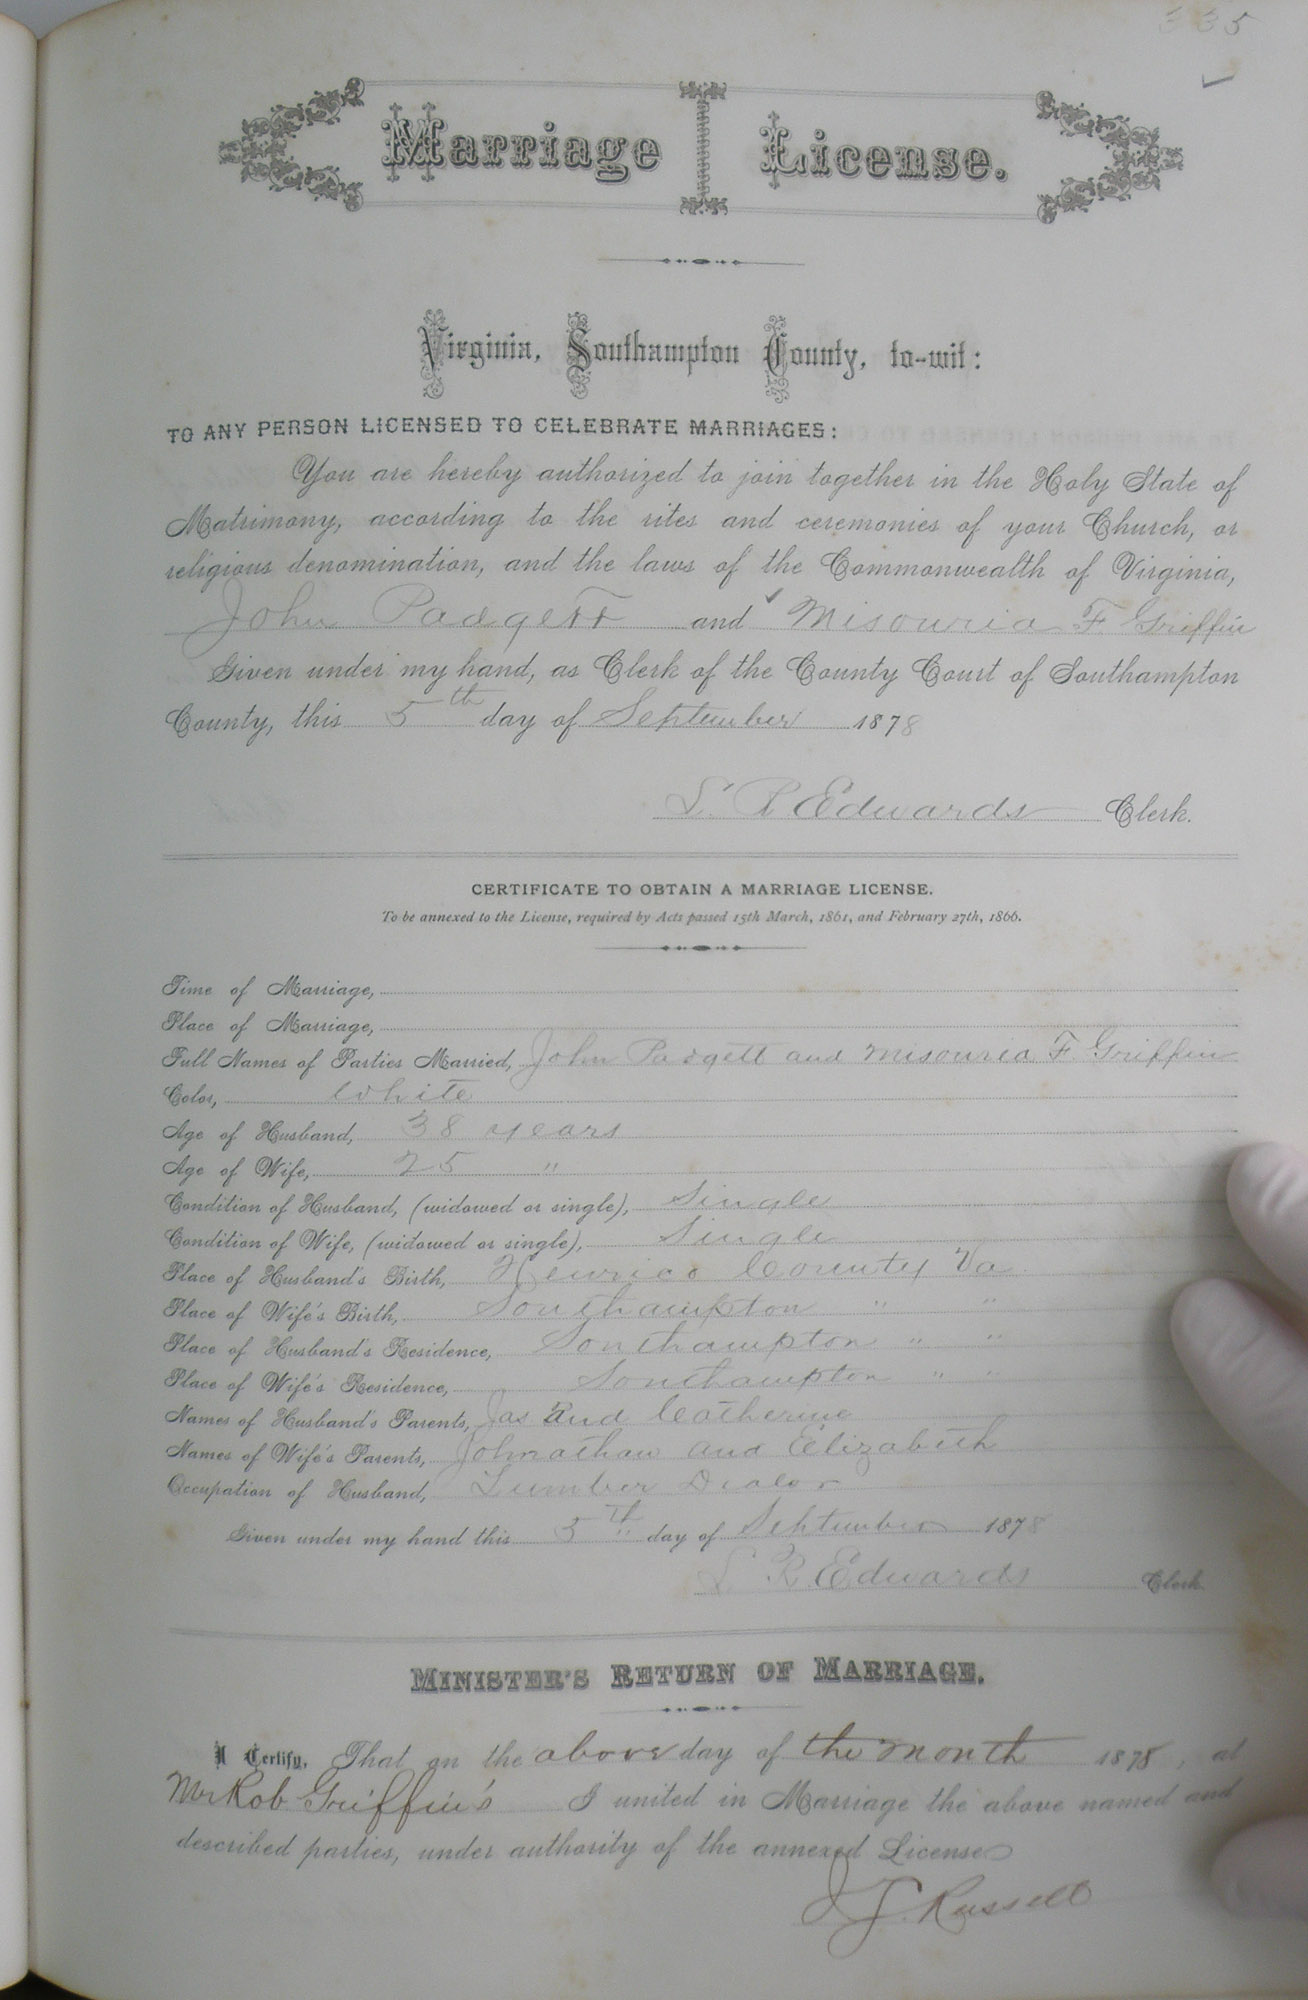 335
Marriage License.
Virginia, Southampton County, to-wit:
TO ANY PERSON LICENSED TO CELEBRATE MARRIAGES:
You are hereby authorized to join together in the Holy State of
Matrimony, according to the rites and ceremonies of your Church, or
religious denomination, and the laws of the Commonwealth of Virginia,
John Padgett and Misouria F. Griffin
Given under my hand, as Clerk of the County Court of Southampton
County, this 5th day of September 1878
L. R. Edwards Clerk.
CERTIFICATE TO OBTAIN A MARRIAGE LICENSE.
To be annexed to the License, required by Acts passed 15th March, 1861, and February 27th, 1866.
Time of Marriage,
Place of Marriage,
Full Names of Parties Married, John Padgett and Misouria F. Griffin
Color, White
Age of Husband, 38 years
Age of Wife, 25 "
Condition of Husband, (widowed or single), Single
Condition of Wife, (widowed or single), Single
Place of Husband's Birth, Henrico County Va.
Place of Wife's Birth, Southampton " "
Place of Husband's Residence, Southampton " "
Place of Wife's Residence, Southampton " "
Names of Husband's Parents, Jas and Catherine
Names of Wife's Parents, Johnathan and Elizabeth
Occupation of Husband, Lumber Dealor
Given under my hand this 5th day of September 1878
L. R. Edwards Clerk.
MINISTER'S RETURN OF MARRIAGE.
I Certify, That on the above day of the month 1878, at
Mr Rob Griffin's I united in Marriage the above named and
described parties, under authority of the annexed License
J. T. Russell